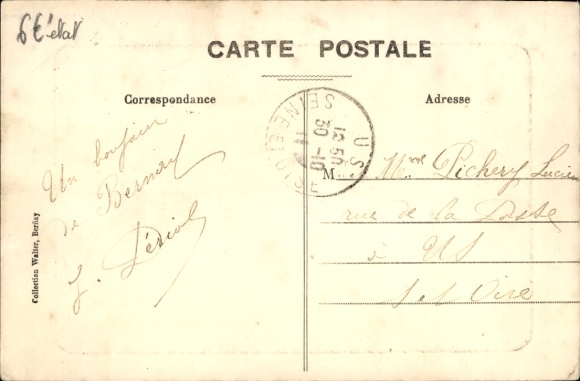 6 t état
CARTE POSTALE
Correspondance
Adresse
Un bonjour
de Bernay
J.
US
12 50
30 -10
SEINE ET OISE
M
Mme Pichery Lucien
rue de la Poste
à US
S et Oise
Collection Walter, Bernay